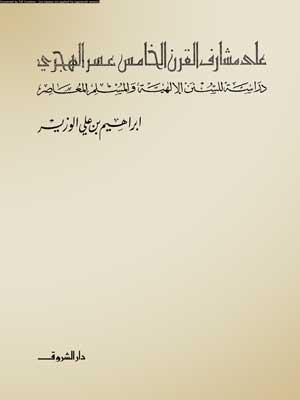 Converted by Tiff Combine - (no stamps are applied by registered version)
على مشارف القرن الخامس عشر الهجري
دراسة للسنن الإلهية والمسلم المعاصر
ابراهيم بن علي الوزير
دار الشروق